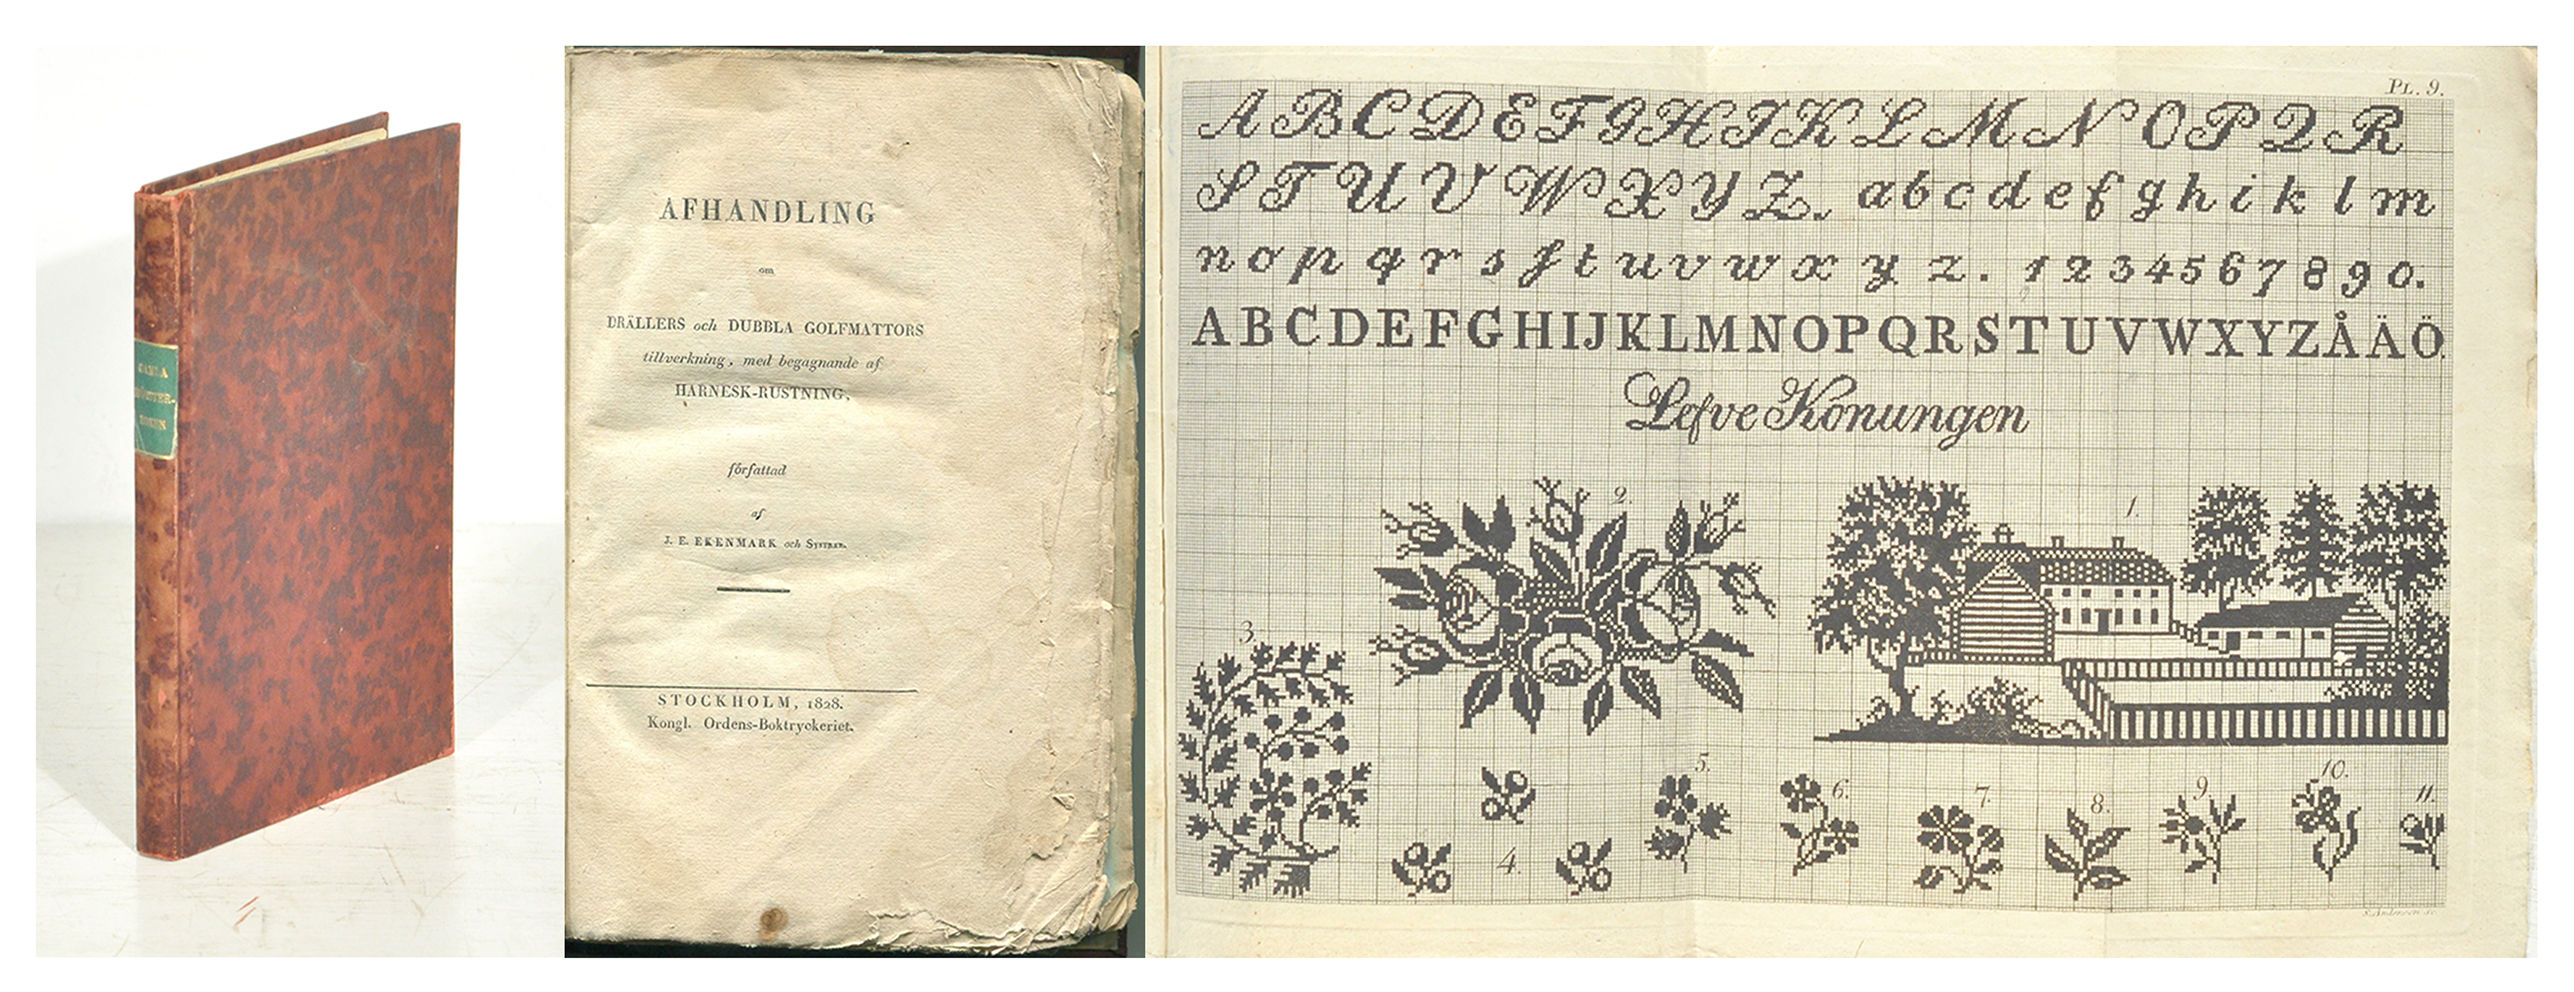 GAMLA
MÖNSTER-
BOKEN
AFHANDLING
om
DRÄLLERS och DUBBLA GOLFMATTORS
tillverkning, med begagnande af
HARNESK-RUSTNING,
författad
af
J. E. EKENMARK och Systrar.
STOCKHOLM, 1828.
Kongl. Ordens-Boktryckeriet.
PL. 9.
A B C D E F G H I K L M N O P Q R
S T U V W X Y Z. a b c d e f g h i k l m
n o p q r s ſ t u v w x y z. 1 2 3 4 5 6 7 8 9 0.
A B C D E F G H I J K L M N O P Q R S T U V W X Y Z Å Ä Ö.
Lefve Konungen
2.
1.
3.
5.
6.
7.
8.
9.
10.
11.
4.